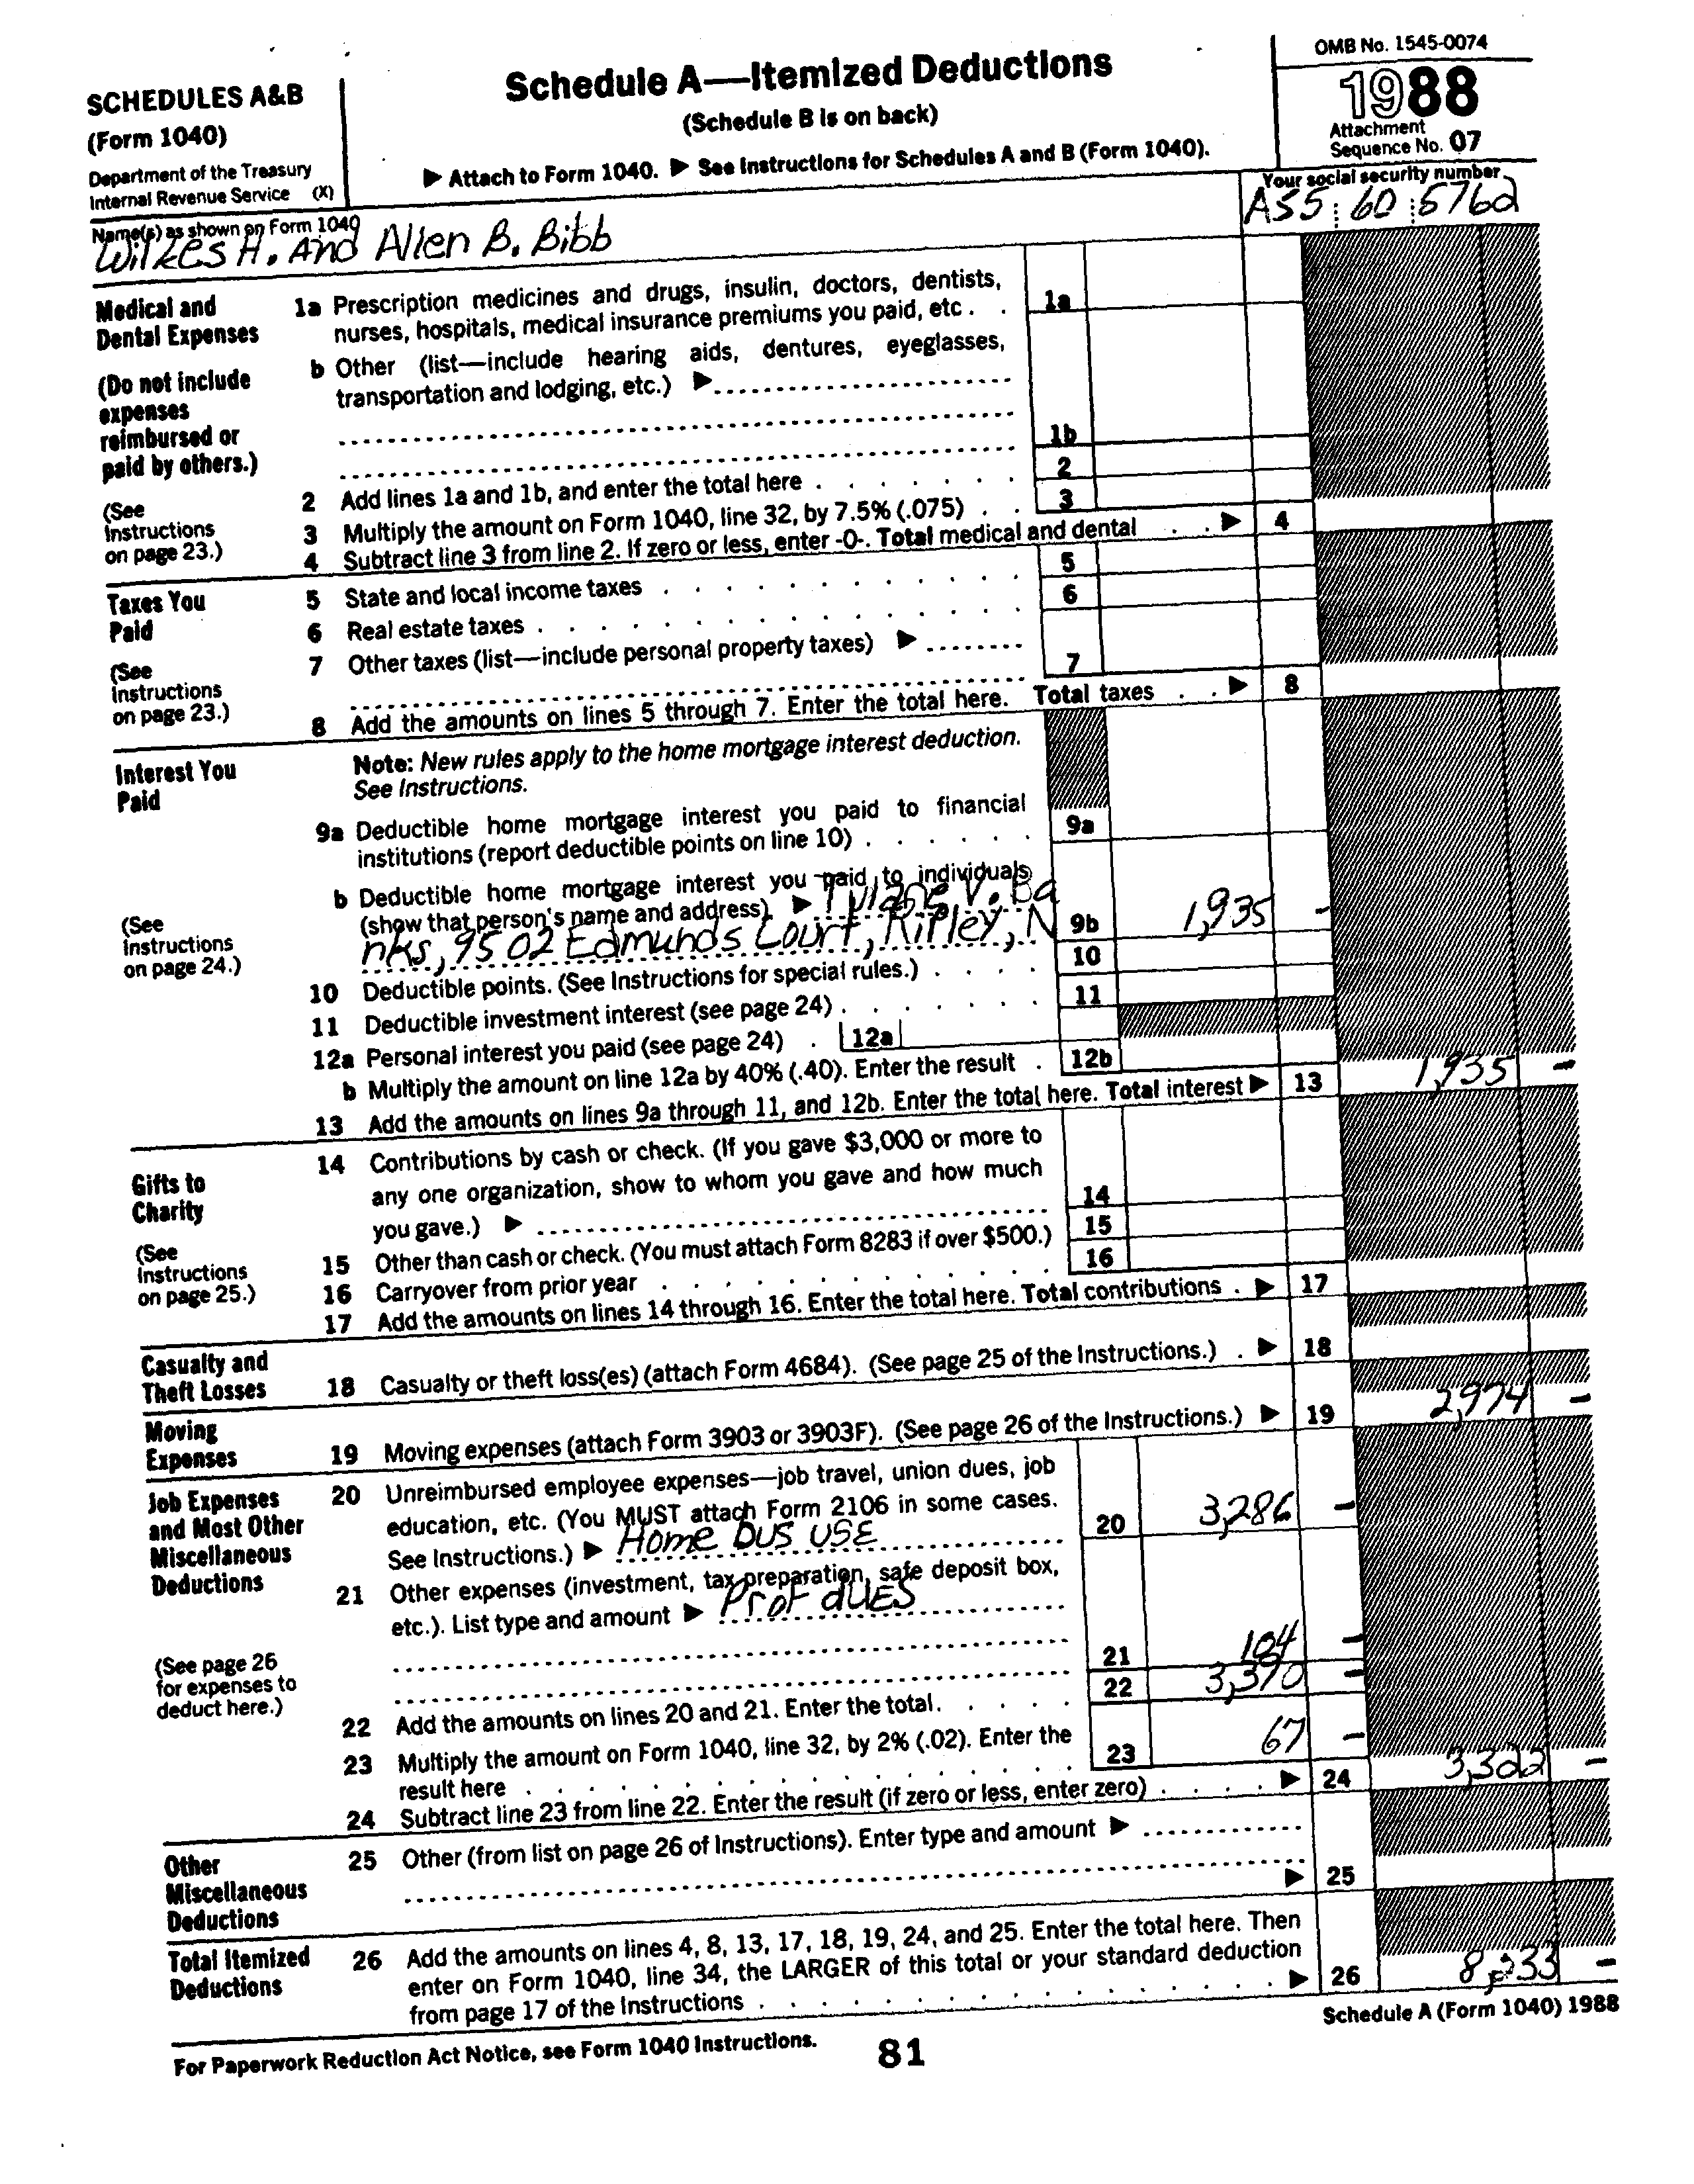 SCHEDULES A&B
(Form 1040)
Department of the Treasury
Internal Revenue Service (X)
Schedule A—Itemized Deductions
(Schedule B is on back)
▶ Attach to Form 1040. ▶ See Instructions for Schedules A and B (Form 1040).
OMB No. 1545-0074
1988
Attachment
Sequence No. 07
Name(s) as shown on Form 1040
Wilkes H. And Allen B. Bibb
Your social security number
A55 60 5762
Medical and
Dental Expenses
(Do not include
expenses
reimbursed or
paid by others.)
(See
Instructions
on page 23.)
1a Prescription medicines and drugs, insulin, doctors, dentists,
nurses, hospitals, medical insurance premiums you paid, etc. . 1a
b Other (list—include hearing aids, dentures, eyeglasses,
transportation and lodging, etc.) ▶
1b
2 Add lines 1a and 1b, and enter the total here 2
3 Multiply the amount on Form 1040, line 32, by 7.5% (.075) 3
4 Subtract line 3 from line 2. If zero or less, enter -0-. Total medical and dental ▶ 4
Taxes You
Paid
(See
Instructions
on page 23.)
5 State and local income taxes 5
6 Real estate taxes 6
7 Other taxes (list—include personal property taxes) ▶
7
8 Add the amounts on lines 5 through 7. Enter the total here. Total taxes ▶ 8
Interest You
Paid
(See
Instructions
on page 24.)
Note: New rules apply to the home mortgage interest deduction.
See Instructions.
9a Deductible home mortgage interest you paid to financial
institutions (report deductible points on line 10) 9a
b Deductible home mortgage interest you paid to individuals
(show that person's name and address) ▶ Tulane V. Ba
nks, 9502 Edmunds Court, Ripley, N 9b 1,935 -
10 Deductible points. (See Instructions for special rules.) 10
11 Deductible investment interest (see page 24) 11
12a Personal interest you paid (see page 24) 12a
b Multiply the amount on line 12a by 40% (.40). Enter the result 12b
13 Add the amounts on lines 9a through 11, and 12b. Enter the total here. Total interest ▶ 13 1,935 -
Gifts to
Charity
(See
Instructions
on page 25.)
14 Contributions by cash or check. (If you gave $3,000 or more to
any one organization, show to whom you gave and how much
you gave.) ▶ 14
15 Other than cash or check. (You must attach Form 8283 if over $500.) 15
16 Carryover from prior year 16
17 Add the amounts on lines 14 through 16. Enter the total here. Total contributions ▶ 17
Casualty and
Theft Losses
18 Casualty or theft loss(es) (attach Form 4684). (See page 25 of the Instructions.) ▶ 18
Moving
Expenses
19 Moving expenses (attach Form 3903 or 3903F). (See page 26 of the Instructions.) ▶ 19 2,974 -
Job Expenses
and Most Other
Miscellaneous
Deductions
(See page 26
for expenses to
deduct here.)
20 Unreimbursed employee expenses—job travel, union dues, job
education, etc. (You MUST attach Form 2106 in some cases.
See Instructions.) ▶ Home bus use 20 3,286 -
21 Other expenses (investment, tax preparation, safe deposit box,
etc.). List type and amount ▶ Prof dues
21 104 -
22 Add the amounts on lines 20 and 21. Enter the total. 22 3,390 -
23 Multiply the amount on Form 1040, line 32, by 2% (.02). Enter the
result here 23 67 -
24 Subtract line 23 from line 22. Enter the result (if zero or less, enter zero) ▶ 24 3,322 -
Other
Miscellaneous
Deductions
25 Other (from list on page 26 of Instructions). Enter type and amount ▶
▶ 25
Total Itemized
Deductions
26 Add the amounts on lines 4, 8, 13, 17, 18, 19, 24, and 25. Enter the total here. Then
enter on Form 1040, line 34, the LARGER of this total or your standard deduction
from page 17 of the Instructions ▶ 26 8,233 -
For Paperwork Reduction Act Notice, see Form 1040 Instructions.
81
Schedule A (Form 1040) 1988